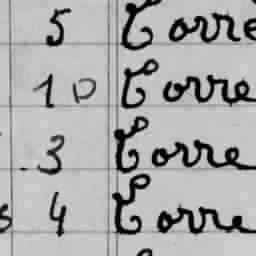 5 Torre
10 Torre
.3 Torre
s 4 Torre